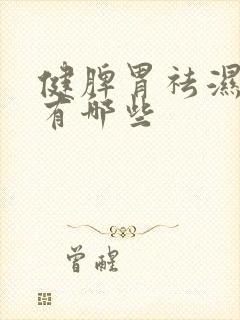 健脾胃祛濕
有哪些
曾醒